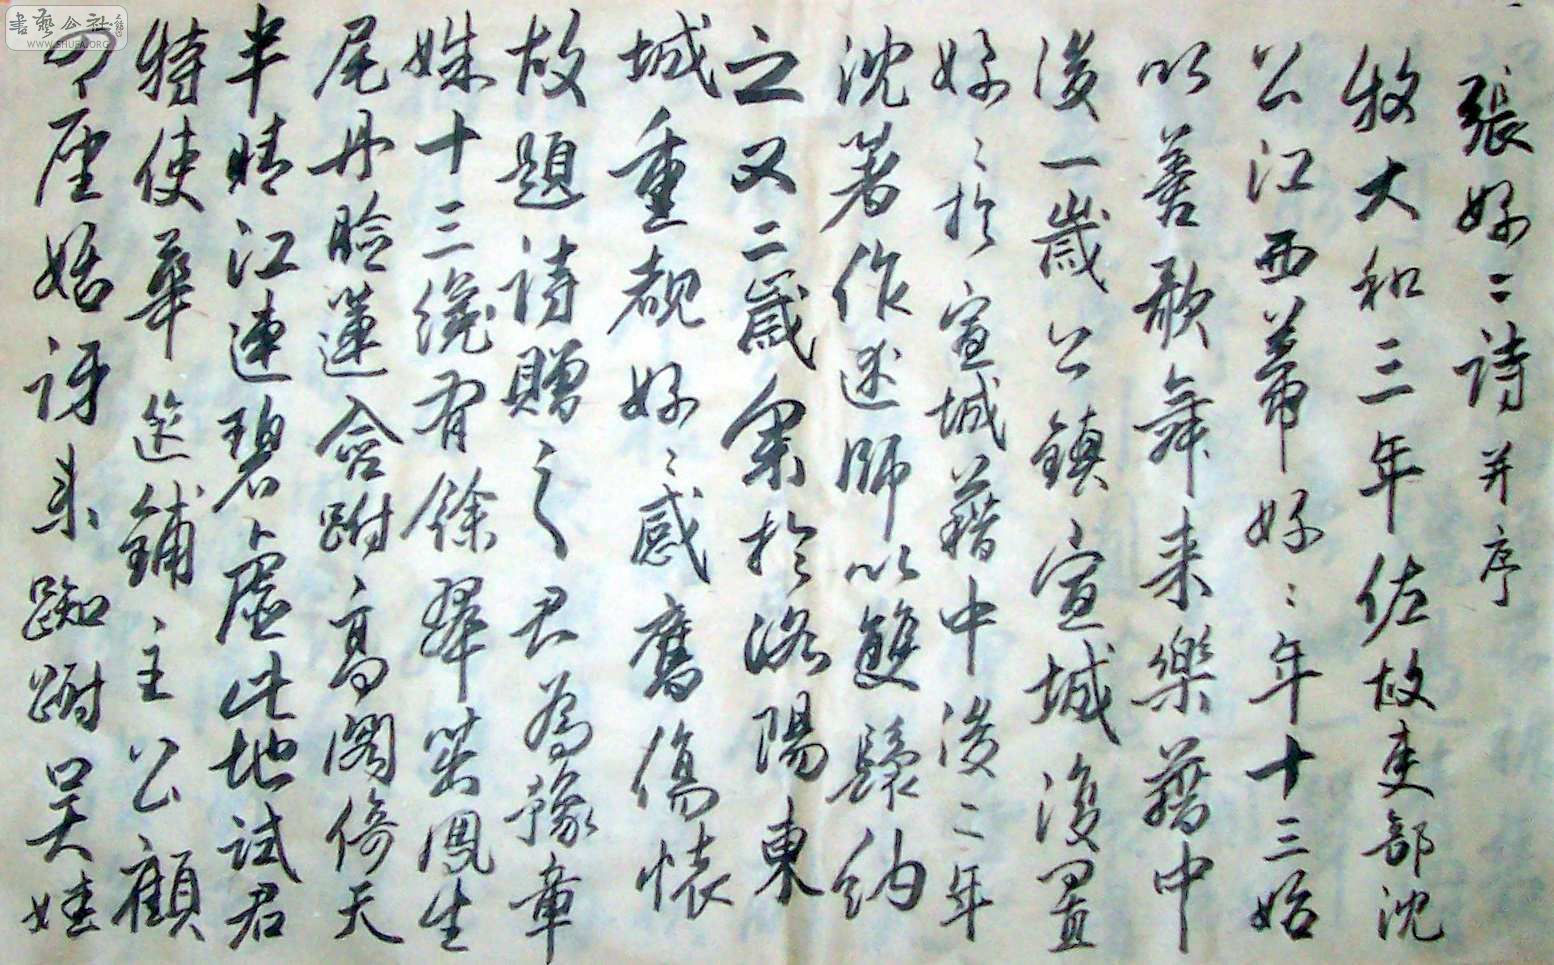 張好二詩并序
牧大和三年佐故吏部沈
公江西幕好〻年十三始
以善歌舞来樂籍中
後一歲公鎮宣城復置
好〻於宣城籍中後二年
沈著作述師以雙鬟納
之又二歲余於洛陽東
城重覩好〻感舊傷懷
故題詩贈之君為豫章
姝十三纔有餘翠茁鳳生
尾丹臉蓮含跗高閣倚天
半晴江連碧虛此地試君
特使華筵鋪主公顧
四座始訝来踟躕吴娃
書藝公社
WWW.SHUFA.ORG